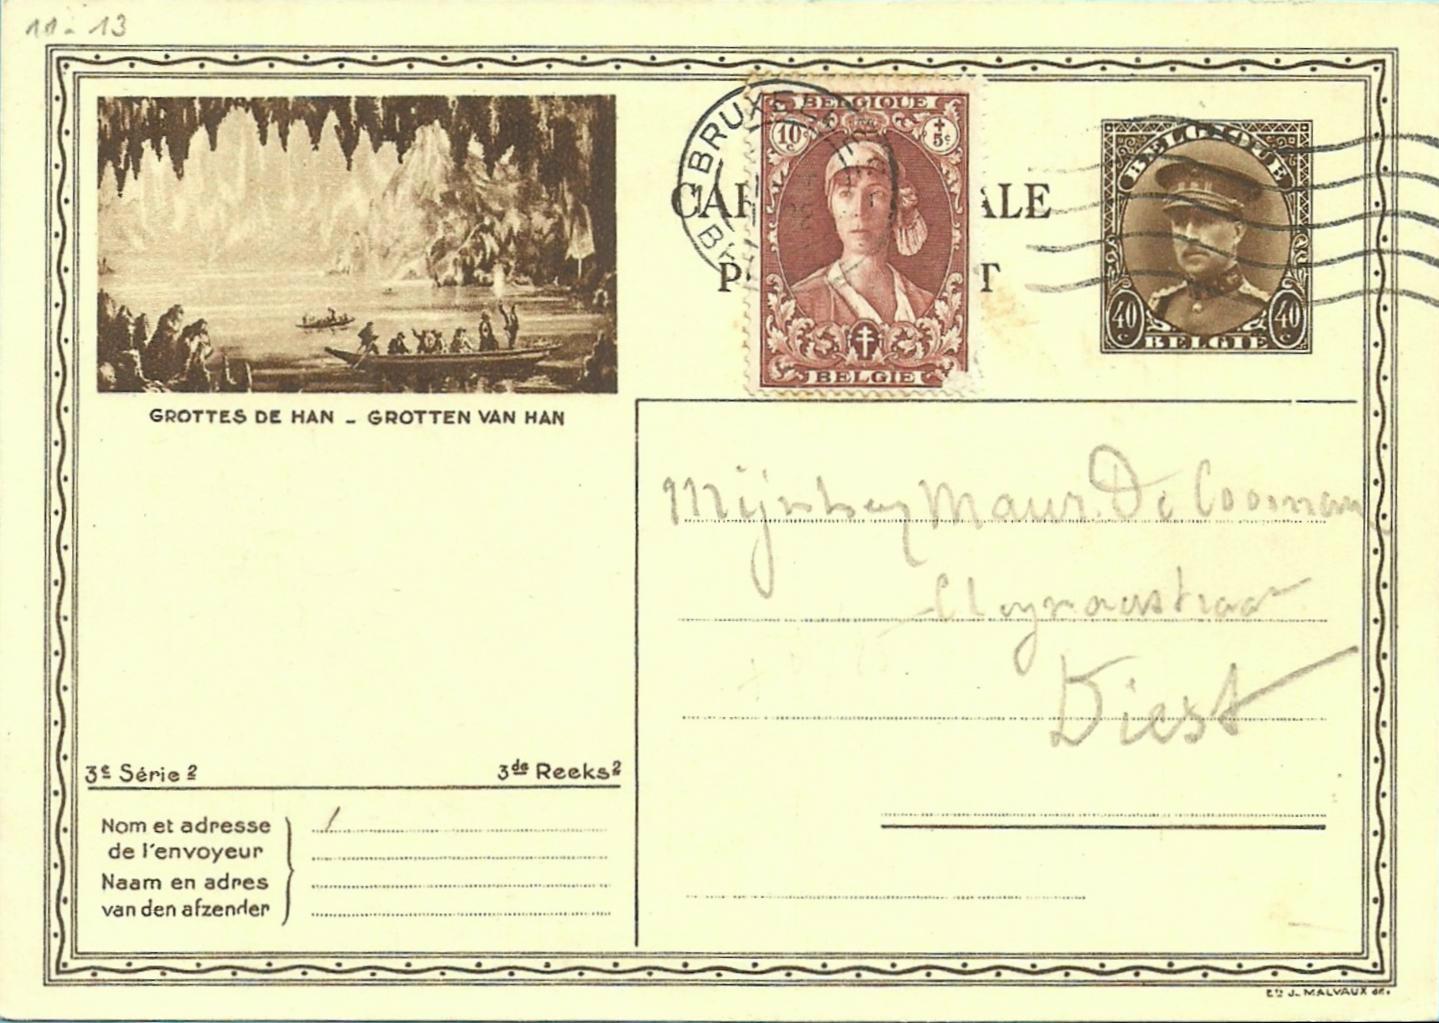 11-13
BRUXE
BELGIQUE
10c
+5c
CA ALE
P T
BELGIE
BELGIQUE
40c 40c
BELGIE
GROTTES DE HAN - GROTTEN VAN HAN
Maur. De Cooman
Diest
3e Série 2 3de Reeks 2
Nom et adresse
de l'envoyeur
Naam en adres
van den afzender
Ets J. MALVAUX